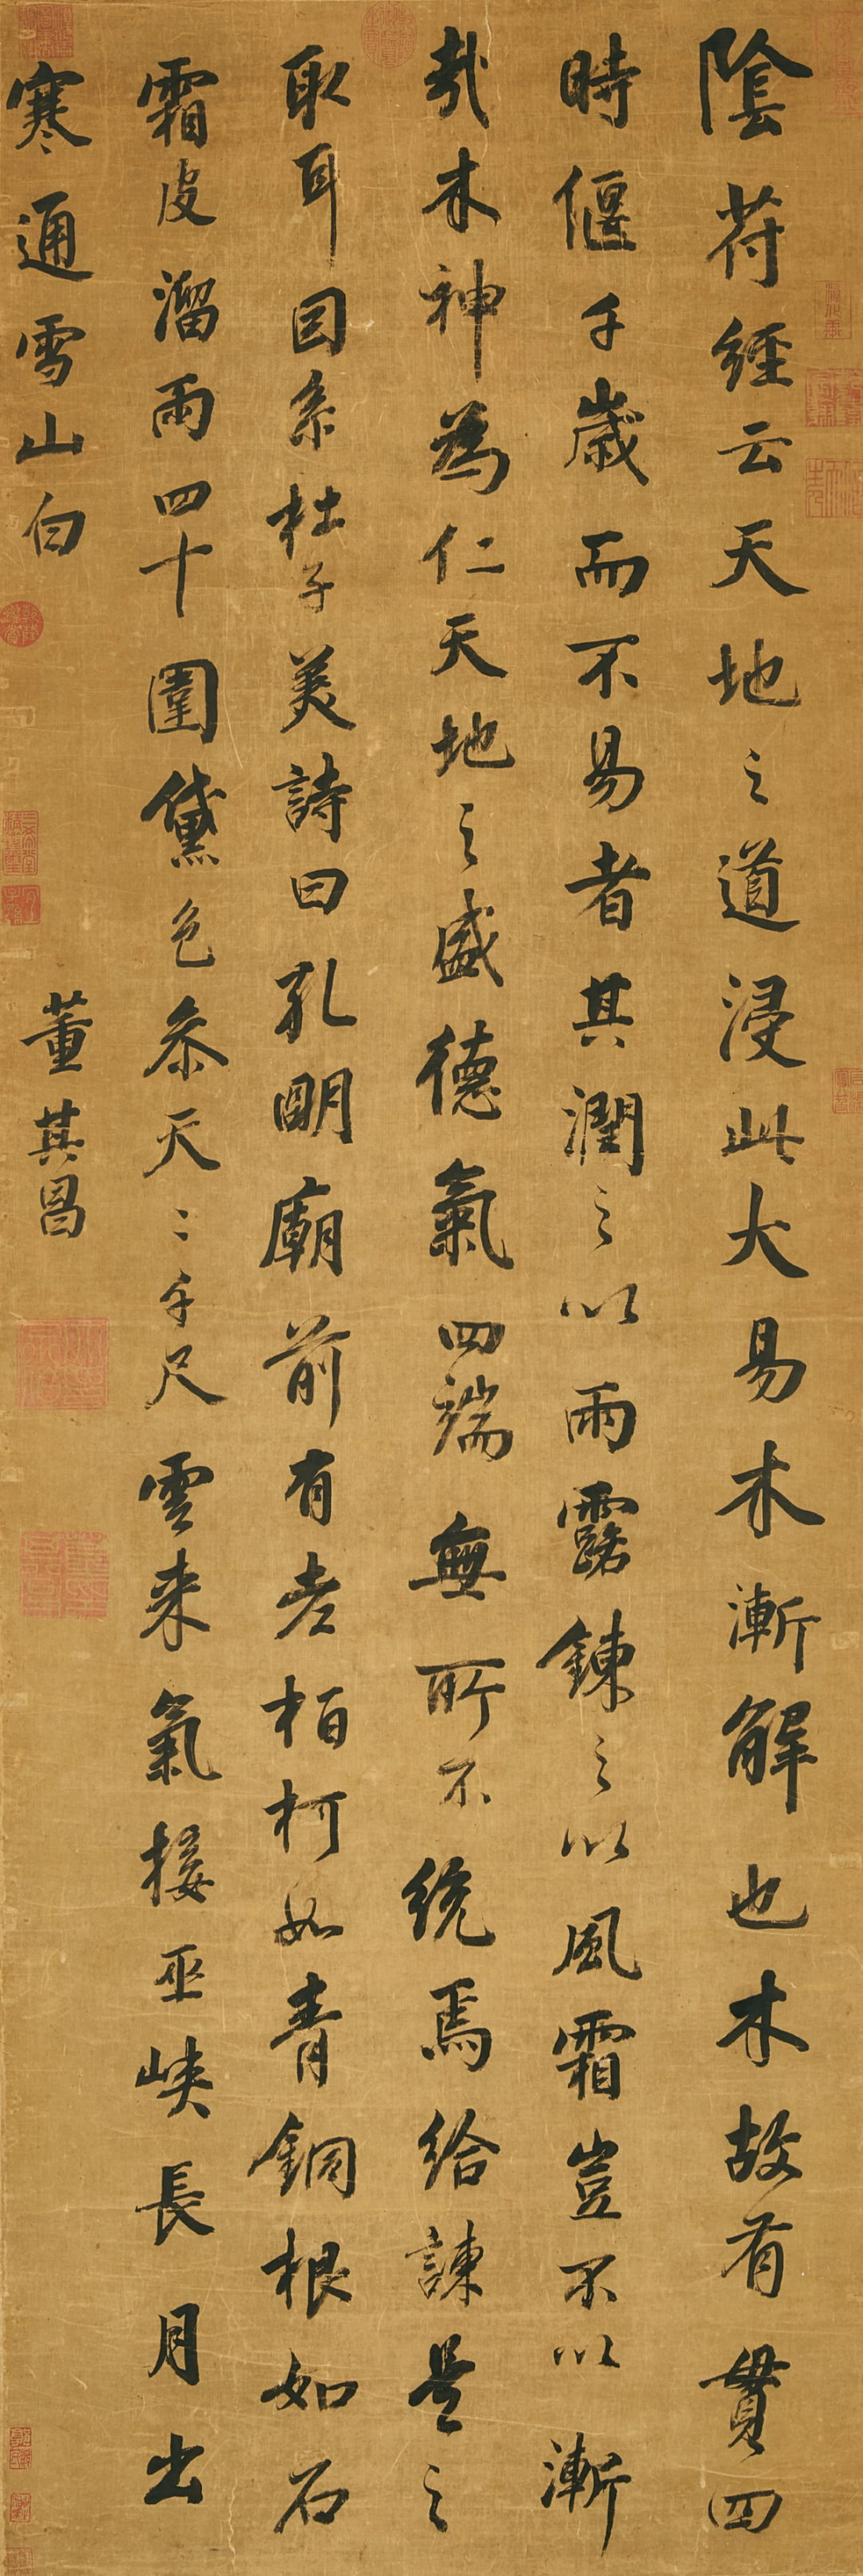 陰符經云天地之道浸此大易木漸解也木故有貫四
時偃千歲而不易者其潤之以雨露鍊之以風霜豈不以漸
哉木神為仁天地之盛德氣四端無所不統焉給諫是之
取耳因系杜子美詩曰孔明廟前有老柏柯如青銅根如石
霜皮溜雨四十圍黛色参天二千尺雲来氣接巫峽長月出
寒通雪山白
董其昌